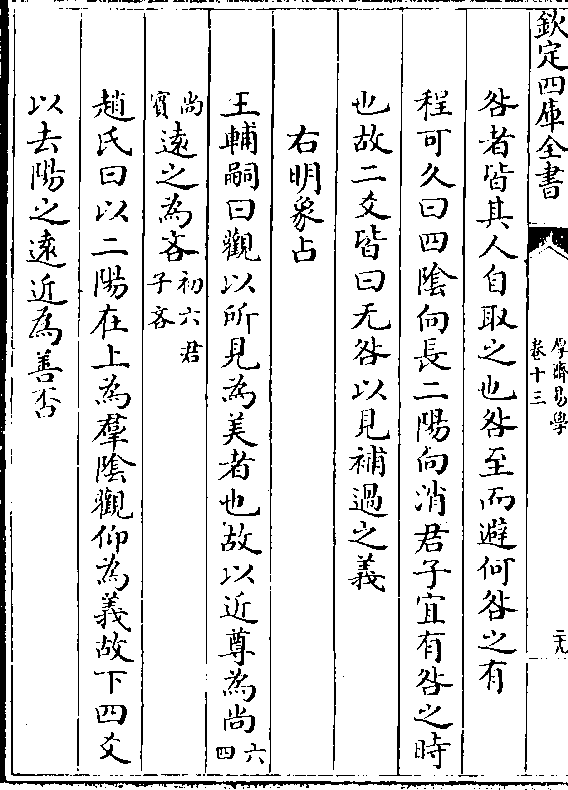 欽定四庫全書
厚齋易學
卷十三
二九
咎者皆其人自取之也咎至而避何咎之有
程可久曰四陰向長二陽向消君子宜有咎之時
也故二爻皆曰无咎以見補過之義
右明象占
王輔嗣曰觀以所見為美者也故以近尊為尚六四
尚賓遠之為吝初六君子吝
趙氏曰以二陽在上為羣陰觀仰為義故下四爻
以去陽之遠近為善否